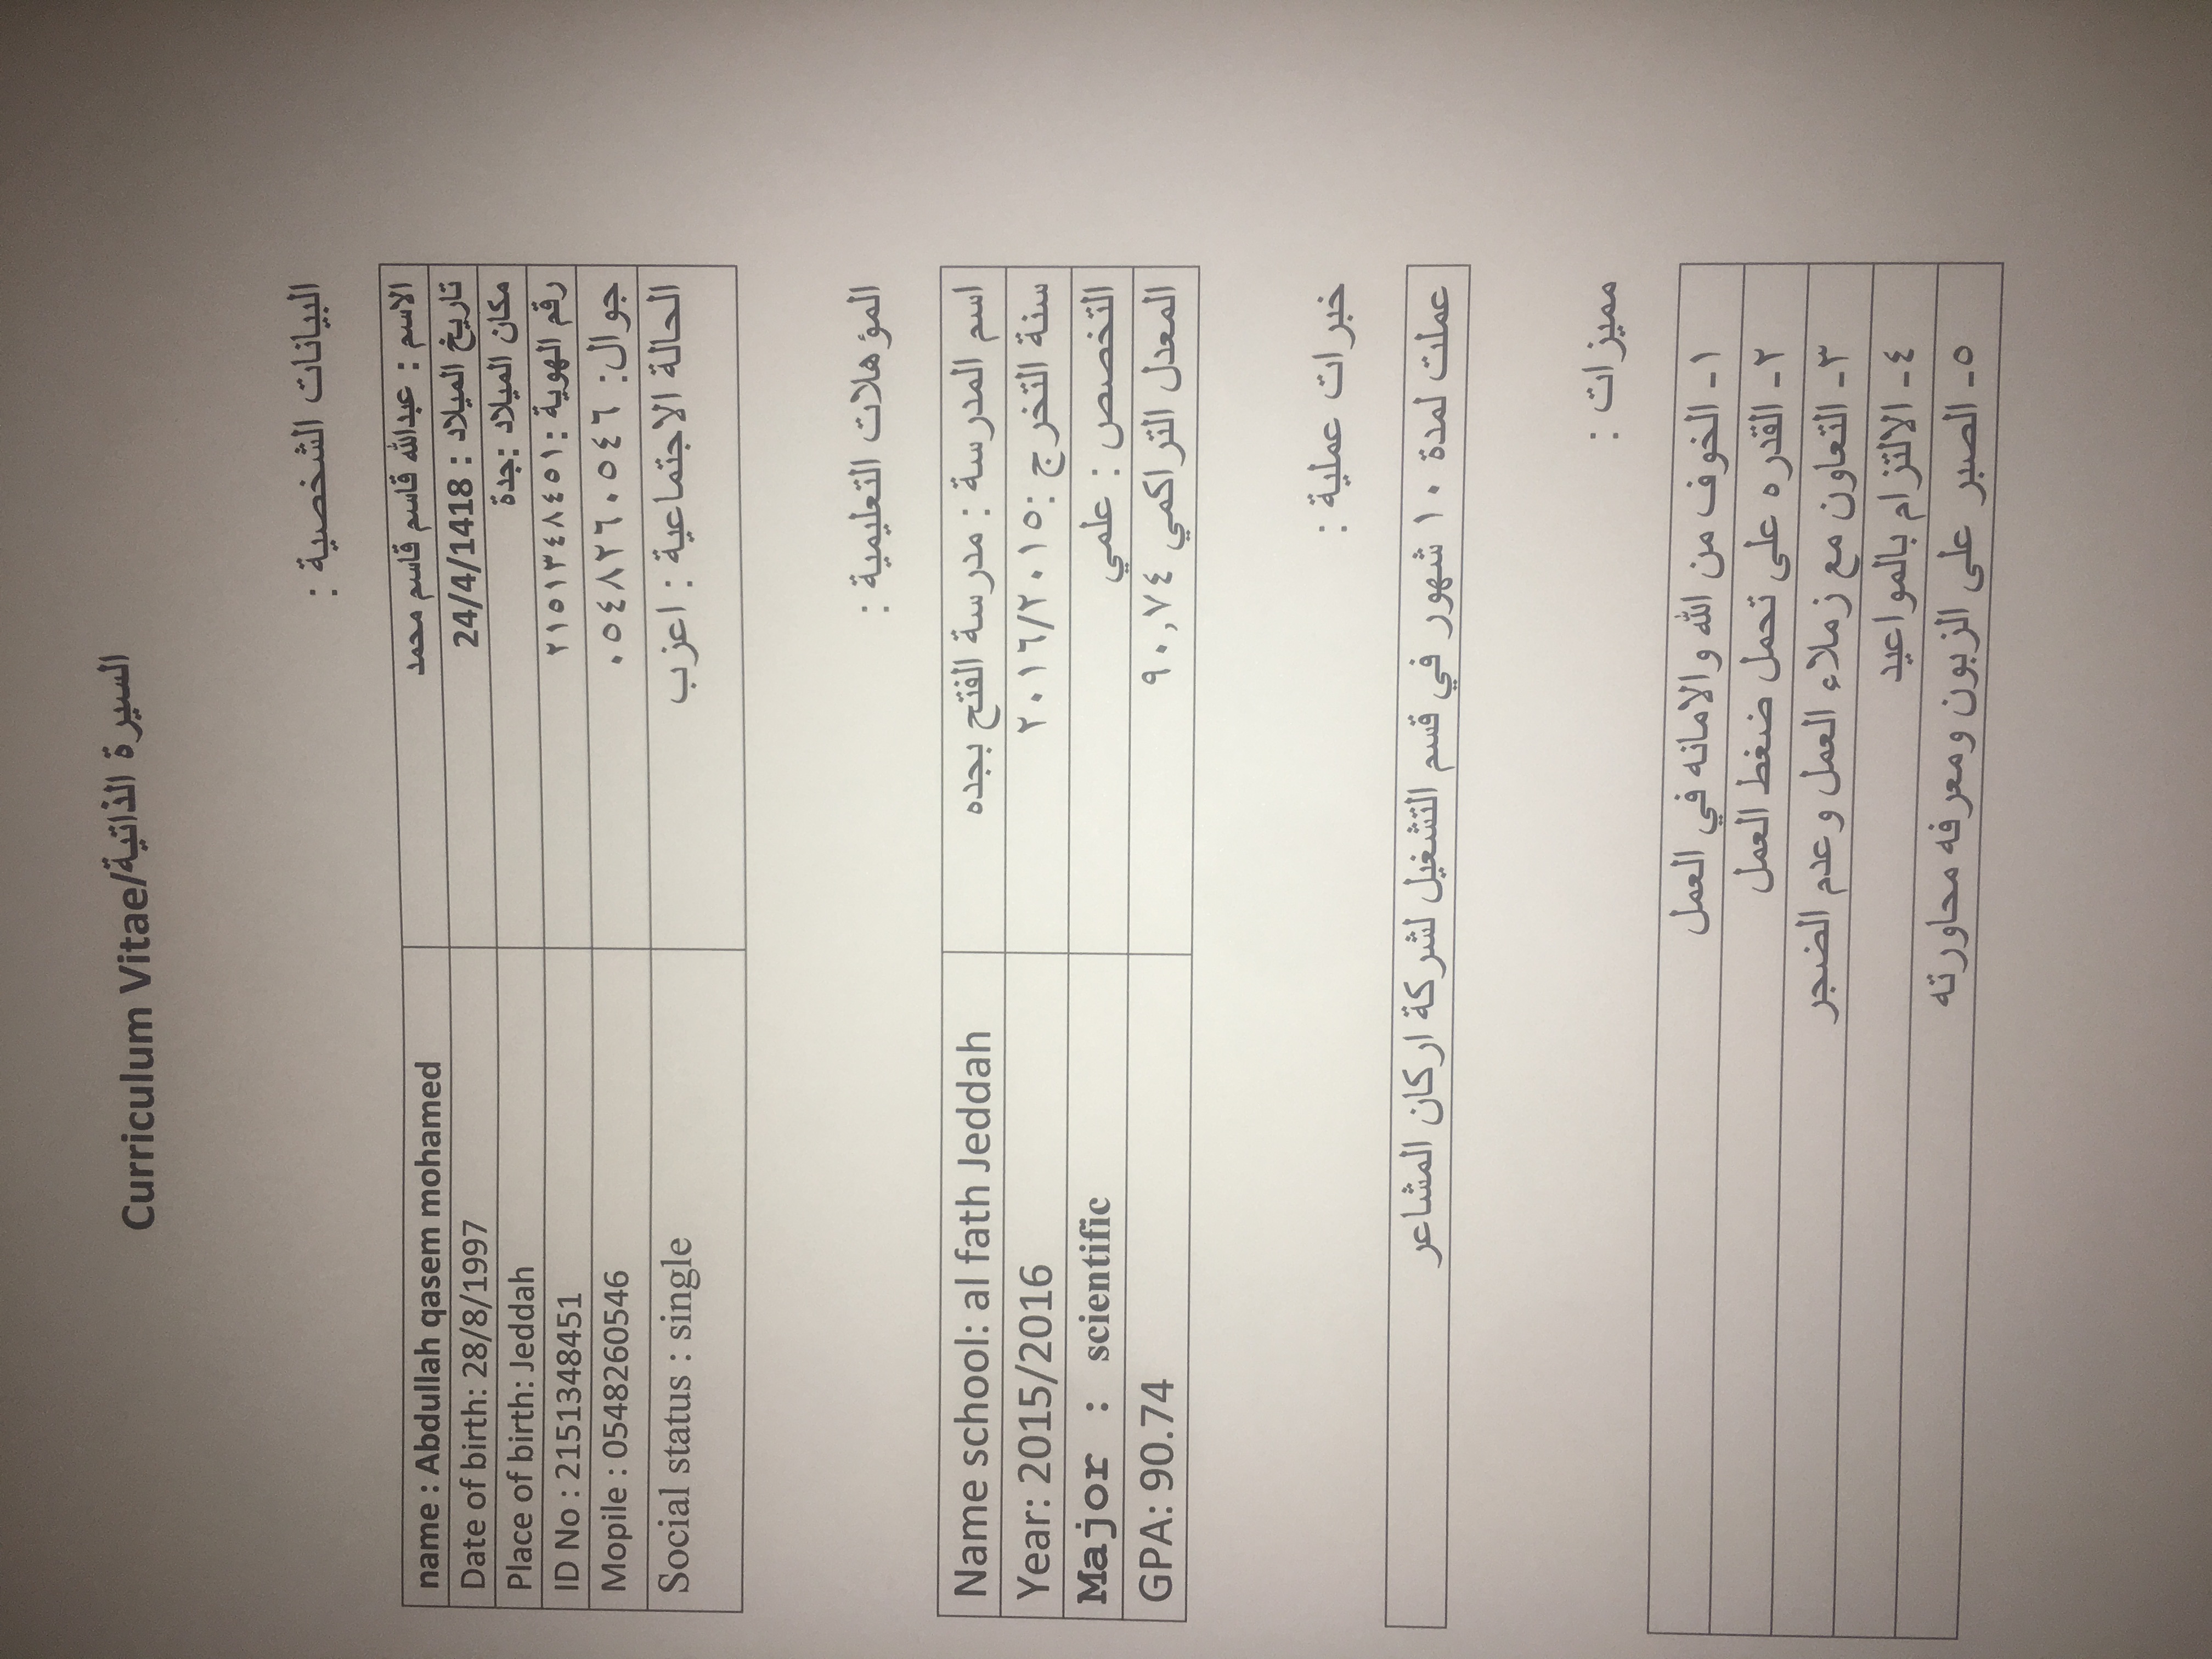 Curriculum Vitae/السيرة الذاتية
البيانات الشخصية :
name : Abdullah qasem mohamed
الاسم : عبدالله قاسم قاسم محمد
Date of birth: 28/8/1997
تاريخ الميلاد : 24/4/1418
Place of birth: Jeddah
مكان الميلاد :جدة
ID No : 2151348451
رقم الهوية :٢١٥١٣٤٨٤٥١
Mopile : 0548260546
جوال: ٠٥٤٨٢٦٠٥٤٦
Social status : single
الحالة الاجتماعية : اعزب
المؤهلات التعليمية :
Name school: al fath Jeddah
اسم المدرسة : مدرسة الفتح بجده
Year: 2015/2016
سنة التخرج :٢٠١٦/٢٠١٥
Major : scientific
التخصص : علمي
GPA: 90.74
المعدل التراكمي ٩٠,٧٤
خبرات عملية :
عملت لمدة ١٠ شهور في قسم التشغيل لشركة اركان المشاعر
مميزات :
١- الخوف من الله والامانه في العمل
٢- القدره على تحمل ضغط العمل
٣- التعاون مع زملاء العمل وعدم الضجر
٤- الالتزام بالمواعيد
٥- الصبر على الزبون ومعرفه محاورته